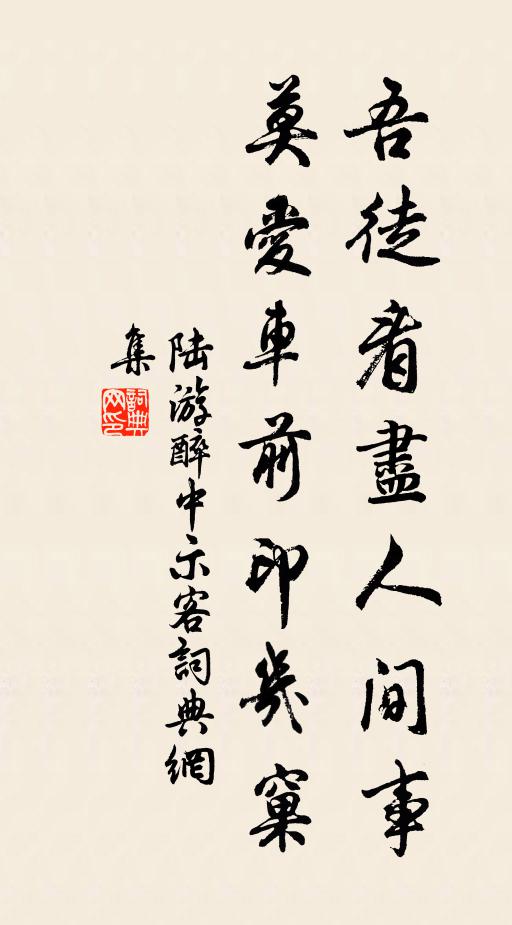 吾徒看盡人間事
莫愛車前印幾窠
陸游醉中示客詞典網
集
詞典
网印